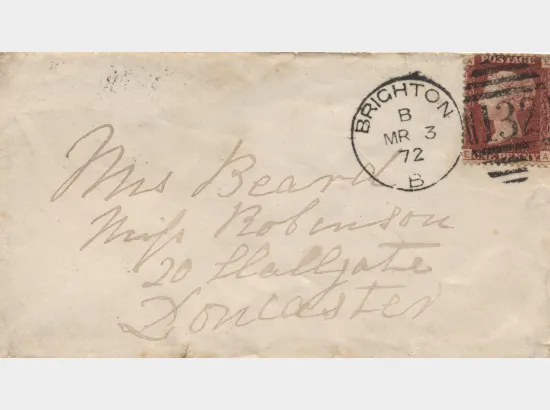 BRIGHTON
B
MR 3
72
B
POSTAGE
132
ONE PENNY
Mrs Beard
Miss Robinson
20 Hallgate
Doncaster